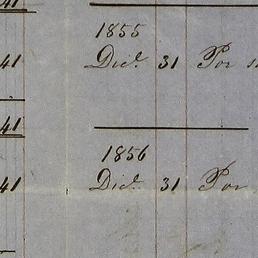 41
1855
41 Dic.e 31 Por
41
1856
41 Dic.e 31 Por